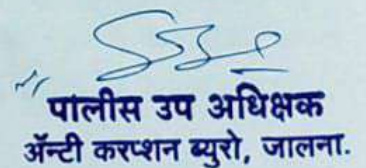 पोलीस उप अधिक्षक
ॲन्टी करप्शन ब्युरो, जालना.